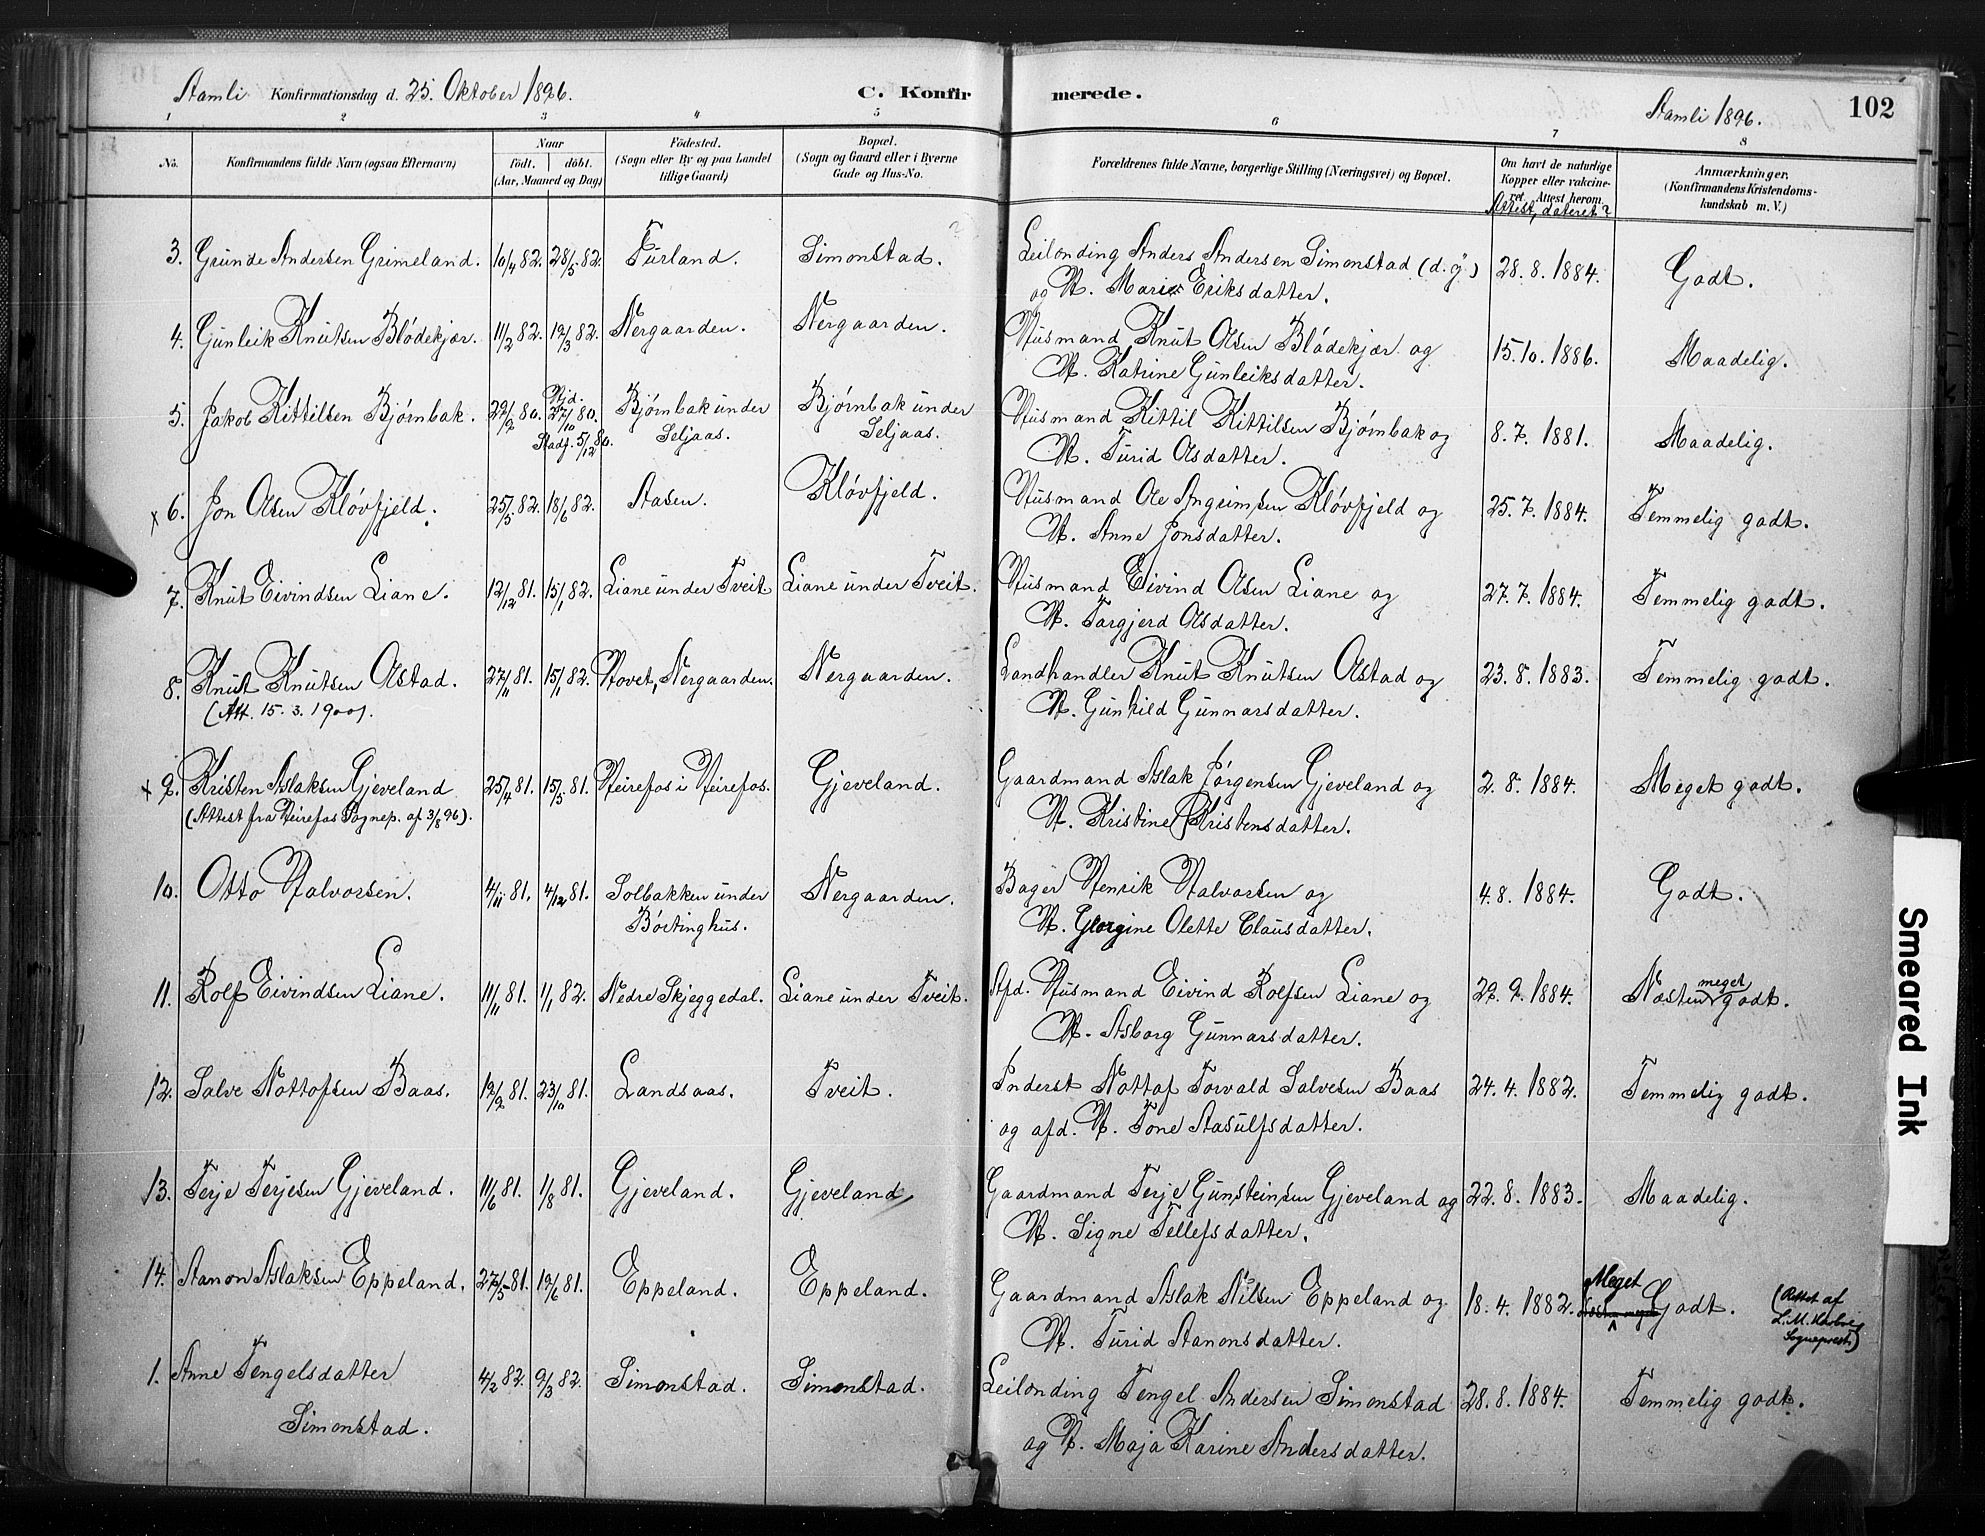 Aamli Konfirmationsdag d. 25. Oktober 1896. C. Konfirmerede. Aamli 1896. 102
1 2 3 4 5 6 7 8
No. Konfirmandens fulde Navn (ogsaa Efternavn) Naar født. døbt. (Aar, Maaned og Dag) Fødested. (Sogn eller By og paa Landet tillige Gaard) Bopæl. (Sogn og Gaard eller i Byerne Gade og Hus-No. Forældrenes fulde Navne, borgerlige Stilling (Næringsvei) og Bopæl. Om havt de naturlige Kopper eller vakcineret. Attest herom. Attest, dateret? Anmærkninger. (Konfirmandens Kristendomskundskab m. V.)
3. Grunde Andersen Grimeland. 10/4 82. 28/5 82. Furland. Simonstad. Leilænding Anders Andersen Simonstad (d. y.) 28. 8. 1884. Godt.
og H. Marie Eriksdatter.
4. Gunleik Knutsen Blødekjær. 11/2 82. 19/3 82. Nergaarden. Nergaarden. Husmand Knut Olsen Blødekjær og 15. 10. 1886. Maadelig.
H. Katrine Gunleiksdatter.
5. Jakob Kittilsen Bjørnbak. 29/9 80. Hjd. 27/10 80. Stadf. 5/12 80. Bjørnbak under Seljaas. Bjørnbak under Seljaas. Husmand Kittil Kittilsen Bjørnbak og 8. 7. 1881. Maadelig.
H. Turid Olsdatter.
x 6. Jon Olsen Kløvfjeld. 25/5 82. 18/6 82. Aasen. Kløvfjeld. Husmand Ole Angrimsen Kløvfjeld og 25. 7. 1884. Temmelig godt.
H. Anne Jonsdatter.
7. Knut Eivindsen Liane. 12/12 81. 15/1 82. Liane under Tveit Liane under Tveit. Husmand Eivind Olsen Liane og 27. 7. 1884. Temmelig godt.
H. Targjerd Olsdatter.
8. Knut Knutsen Olstad. 27/11 81. 15/1 82. Hovet, Nergaarden. Nergaarden. Landhandler Knut Knutsen Olstad og 23. 8. 1883. Temmelig godt.
(Att. 15. 3. 1900). H. Gunhild Gunnarsdatter.
x 9. Kristen Aslaksen Gjeveland 25/4 81. 15/5 81. Heirefos i Heirefos. Gjeveland. Gaardmand Aslak Jørgensen Gjeveland og 2. 8. 1884. Meget godt.
(Attest fra Heirefos Sognep. af 3/8 96). H. Kristine Kristensdatter.
10. Otto Halvorsen. 4/11 81. 4/12 81. Solbakken under Børtinghus. Nergaarden. Bager Henrik Halvorsen og 4. 8. 1884. Godt.
H. Georgine Olette Clausdatter.
11. Rolf Eivindsen Liane. 11/11 81. 1/1 82. Nedre Skjeggedal. Liane under Tveit. Afd. Husmand Eivind Rolfsen Liane og 29. 9. 1884. Næsten meget godt.
H. Asborg Gunnarsdatter.
12. Salve Nottofsen Baas. 19/9 81. 23/10 81. Landsaas. Tveit. Inderst Nottof Torvald Salvesen Baas 24. 4. 1882. Temmelig godt.
og afd. H. Tone Aasulfsdatter.
13. Terje Terjesen Gjeveland. 11/6 81. 1/8 81. Gjeveland. Gjeveland Gaardmand Terje Gunsteinsen Gjeveland og 22. 8. 1883. Maadelig.
H. Signe Tellefsdatter.
14. Aanon Aslaksen Eppeland. 27/5 81. 19/6 81. Eppeland. Eppeland. Gaardmand Aslak Nilsen Eppeland og 18. 4. 1882. Meget Godt. (Rettet af
H. Turid Aanonsdatter. Sogneprest)
1. Anne Tengelsdatter 4/2 82. 9/3 82. Simonstad. Simonstad. Leilænding Tengel Andersen Simonstad 28. 8. 1884. Temmelig godt.
Simonstad. og H. Maja Karine Andersdatter.
Smeared Ink